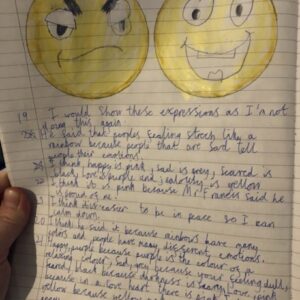 19 I would show these expressions as I'm not
doing this again
20 He said that peoples feeling stretch like a
rainbow because people that are sad tell
people their emotions.
21 I think happy is pink, sad is grey, scared is
black, love is purple and jealousy is yellow
I think it is pink because Mr Frances said he
is proud of me.
I think it's easier to be in peace so I can
calm down.
I think he said it because rainbows have many
colors and people have many different emotions.
happy purple because purple is the colour of a
relaxing, sad grey because your feeling dull,
scared, black because darkness is scary, love pink
because in a love heart there is
yellow because yellow